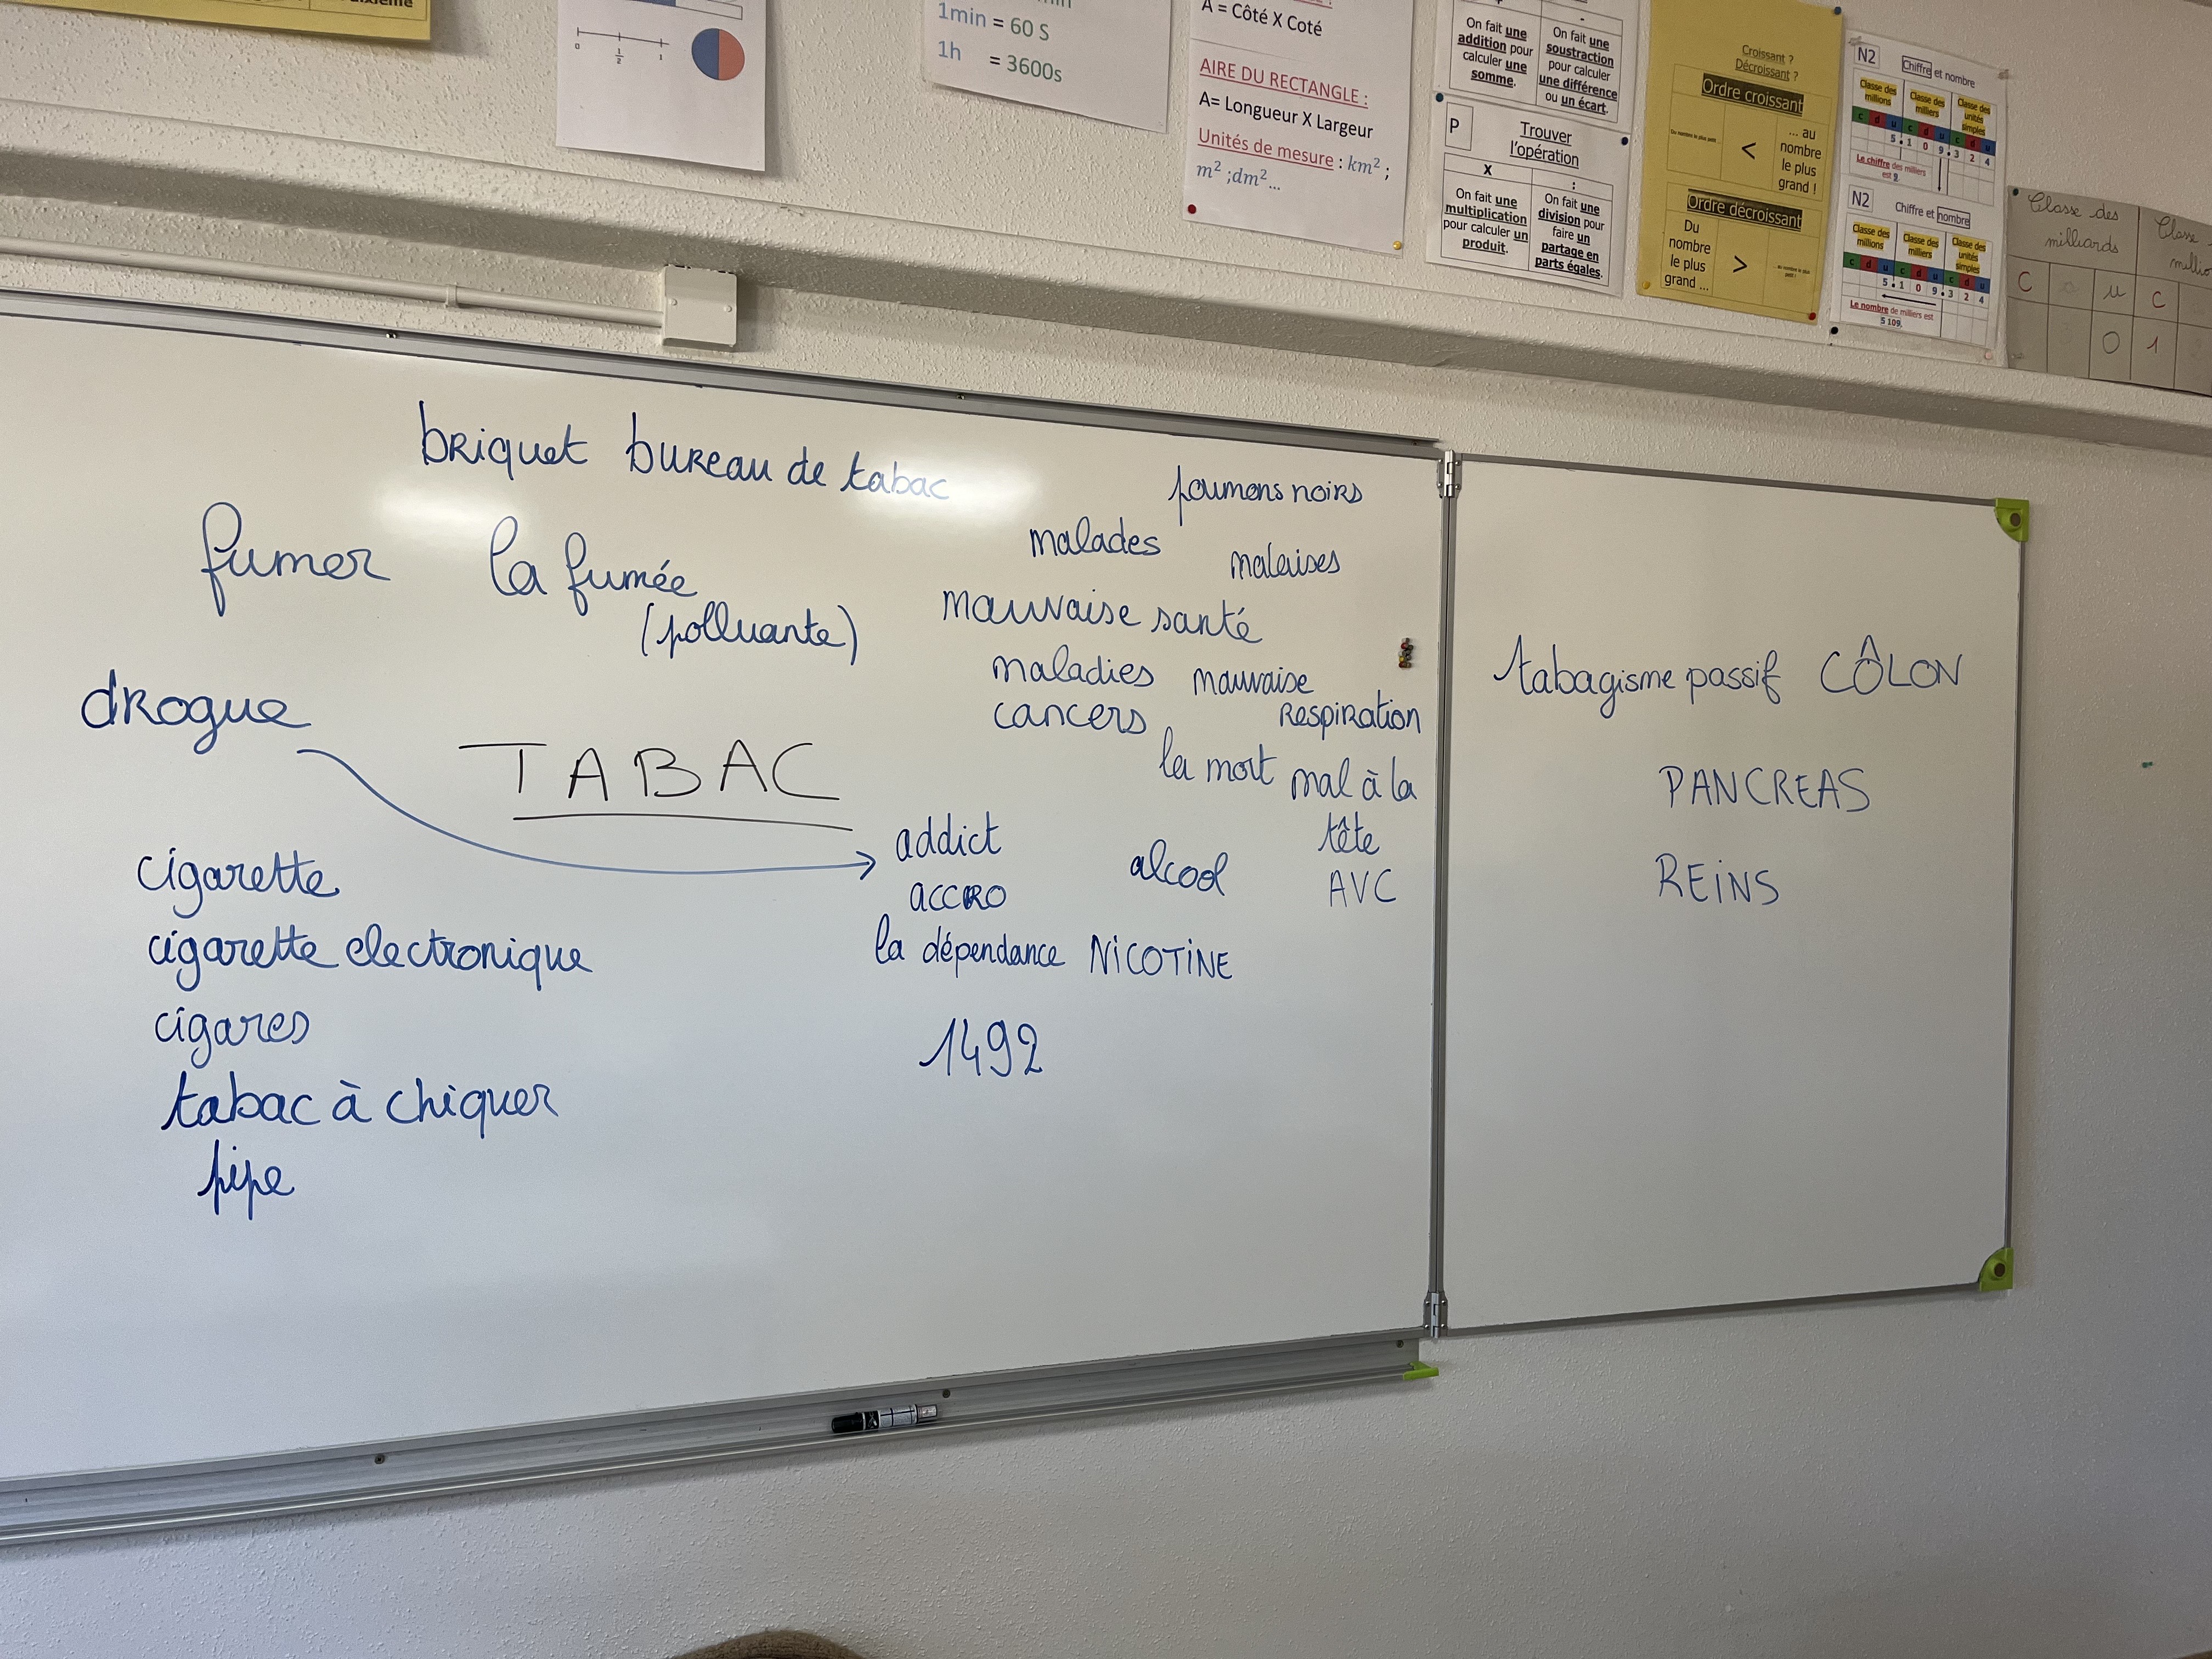 ixième
0 1/2 1
1min = 60 S
1h = 3600s
A = Côté X Coté
AIRE DU RECTANGLE :
A= Longueur X Largeur
Unités de mesure : km² ;
m² ;dm²...
On fait une
addition pour
calculer une
somme.
-
On fait une
soustraction
pour calculer
une différence
ou un écart.
P
Trouver
l'opération
X
On fait une
multiplication
pour calculer un
produit.
:
On fait une
division pour
faire un
partage en
parts égales.
Croissant ?
Décroissant ?
Ordre croissant
Du nombre le plus petit ...
<
... au
nombre
le plus
grand !
Ordre décroissant
Du
nombre
le plus
grand ...
>
... au nombre le plus
petit !
N2
Chiffre et nombre
Classe des
millions
Classe des
milliers
Classe des
unités
simples
c d u c d u c d u
5 1 0 9 3 2 4
Le chiffre des milliers
est 9.
N2
Chiffre et nombre
Classe des
millions
Classe des
milliers
Classe des
unités
simples
c d u c d u c d u
5 1 0 9 3 2 4
Le nombre de milliers est
5 109.
Classe des
milliards
Classe
millio
C u C
0 1
briquet bureau de tabac
poumons noirs
fumer la fumée
(polluante)
malades
malaises
mauvaise santé
drogue
maladies mauvaise
cancers respiration
TABAC
la mort mal à la
tête
addict
alcool
AVC
accro
la dépendance NICOTINE
1492
cigarette
cigarette electronique
cigares
tabac à chiquer
pipe
tabagisme passif CÔLON
PANCREAS
REINS